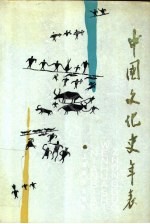 中国文化史年表